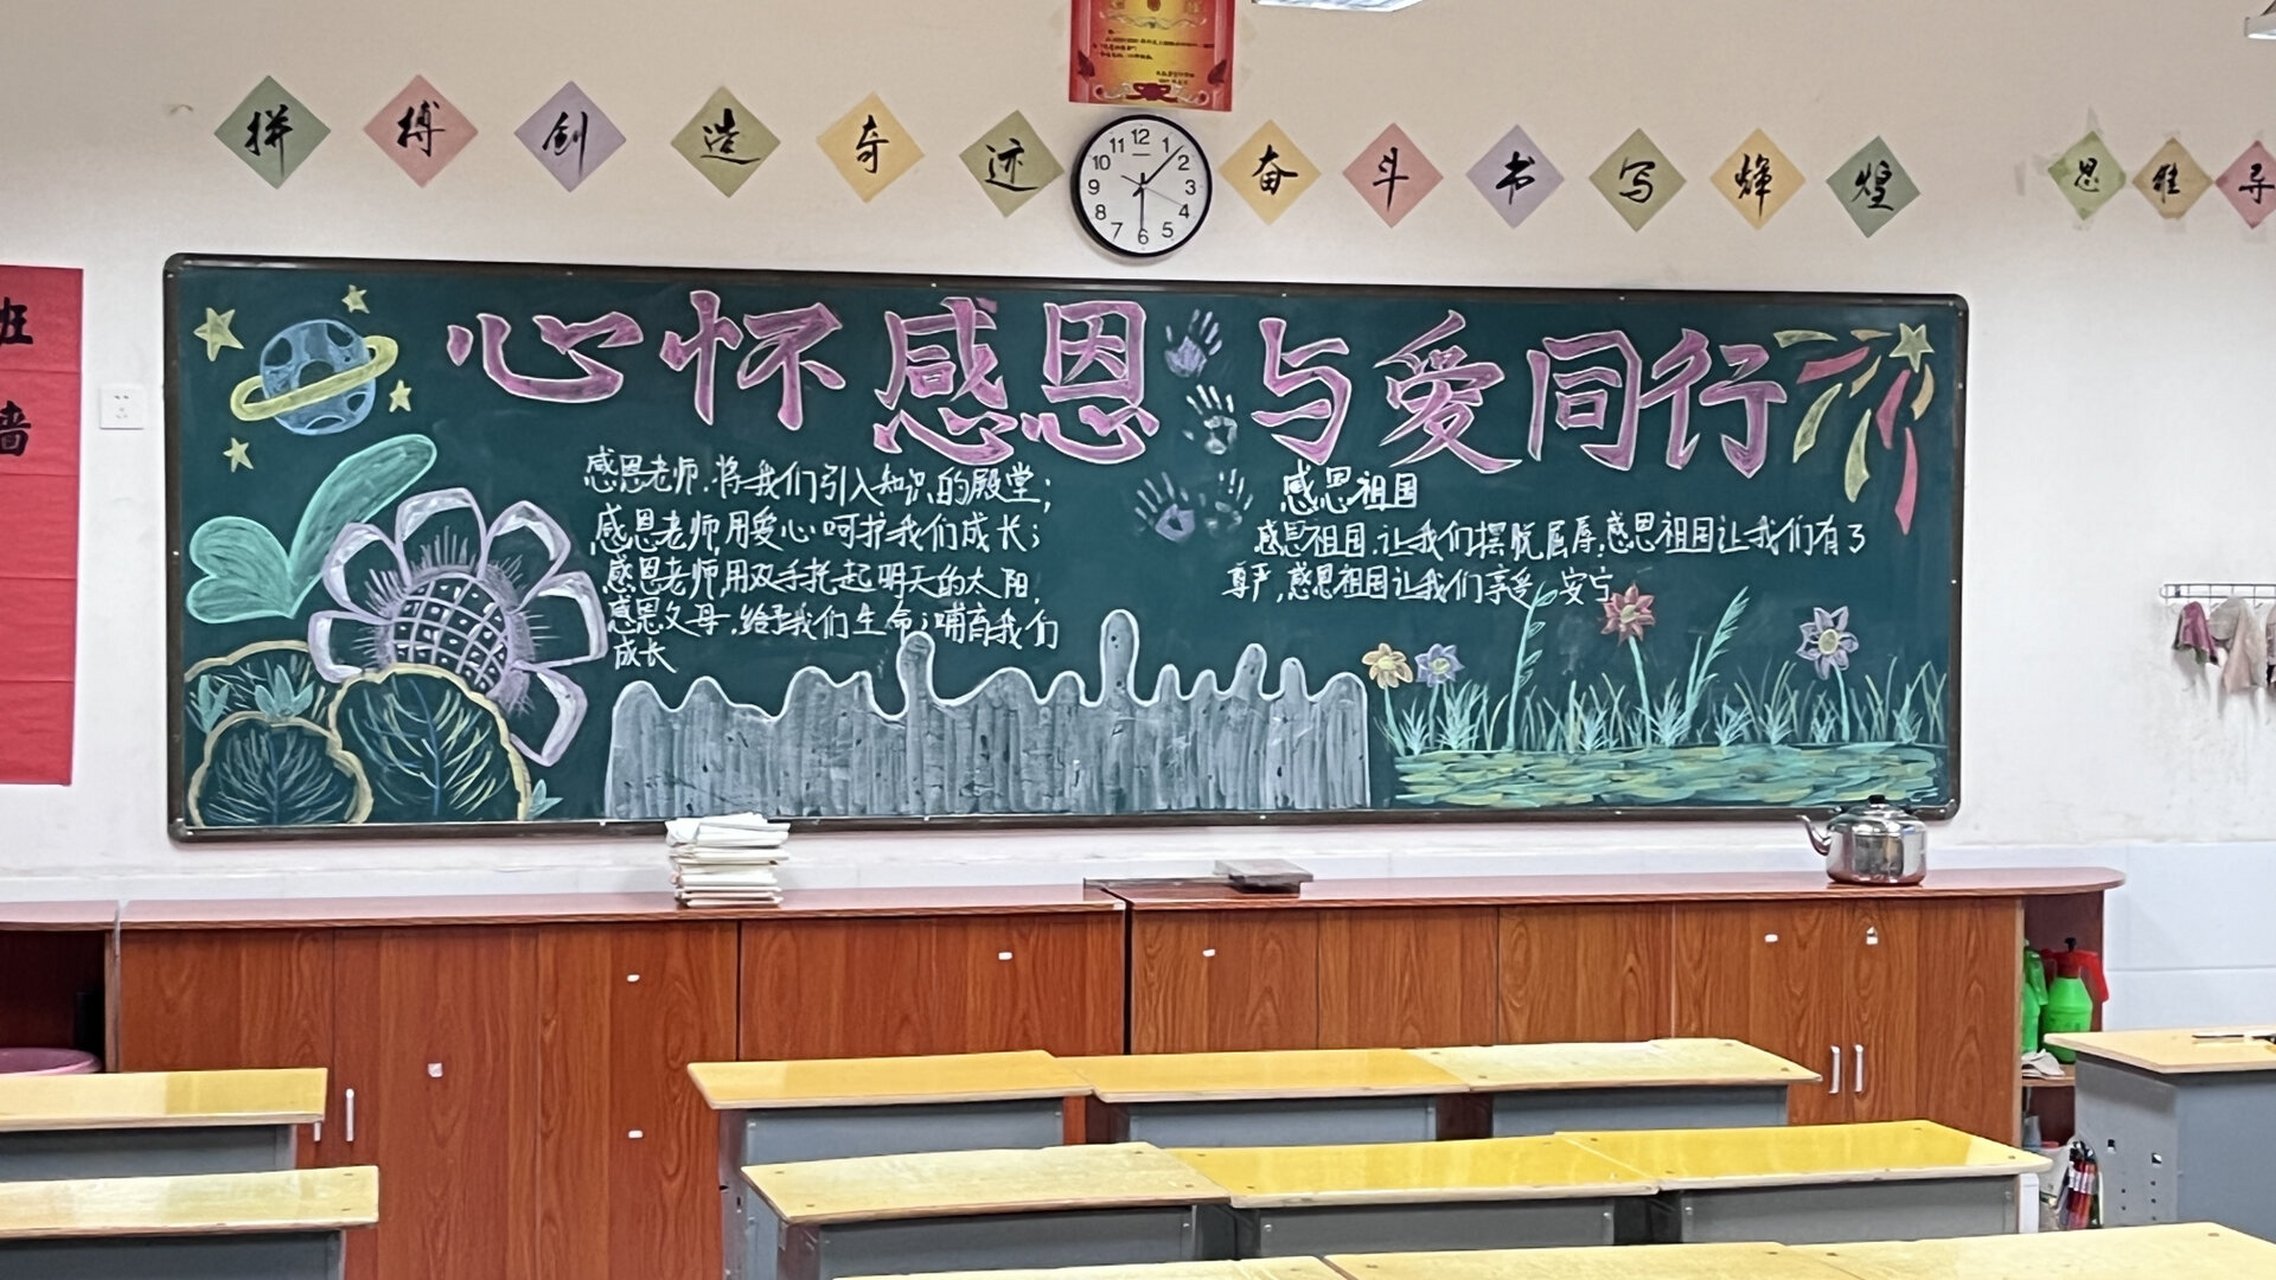 拼搏创造奇迹 奋斗书写辉煌
思维导
班
墙
12 1 2 3 4 5 6 7 8 9 10 11
心怀感恩 与爱同行
感恩老师,将我们引入知识的殿堂;
感恩老师,用爱心呵护我们成长;
感恩老师,用双手托起明天的太阳,
感恩父母,给予我们生命;哺育我们
成长
感恩祖国
感恩祖国,让我们摆脱屈辱,感恩祖国让我们有了
尊严,感恩祖国让我们享受 安宁